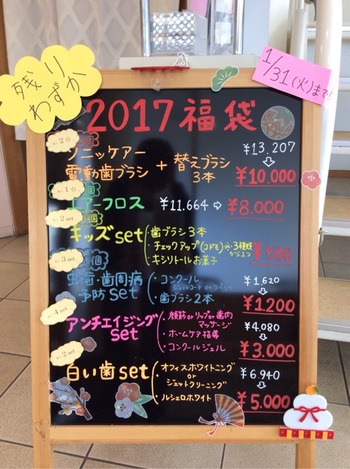 残り
わずか
1/31(火)まで
2017福袋
ソニッケアー
電動歯ブラシ + 替えブラシ
3本
¥13,207
¥10,000
エアーフロス ¥11,664 ⇨ ¥8,000
キッズset
・歯ブラシ3本
・チェックアップ(コドモ)
・キシリトールお菓子
¥500
虫歯・歯周病
予防set
・コンクール
・歯ブラシ2本
¥1,620
¥1,200
アンチエイジング
set
マッサージ
・ホームケア指導
・コンクールジェル
¥4,080
¥3,000
白い歯set
・オフィスホワイトニング
or
ジェットクリーニング
・ルシェロホワイト
¥6,940
¥5,000